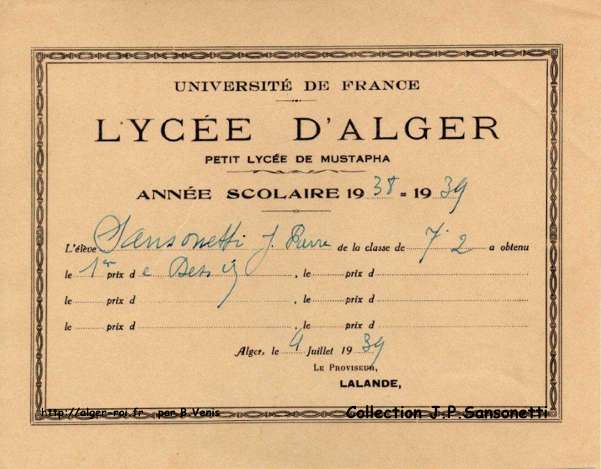 UNIVERSITÉ DE FRANCE
LYCÉE D'ALGER
PETIT LYCÉE DE MUSTAPHA
ANNÉE SCOLAIRE 1938=1939
L'élève Sansonetti J. Pierre de la classe de 7e 2 a obtenu
le 1er prix de Dessin, le prix d
le prix d , le prix d
le prix d , le prix d
Alger, le 9 Juillet 1939
LE PROVISEUR,
LALANDE,
http://alger-roi.fr par B Venis Collection J.P.Sansonetti